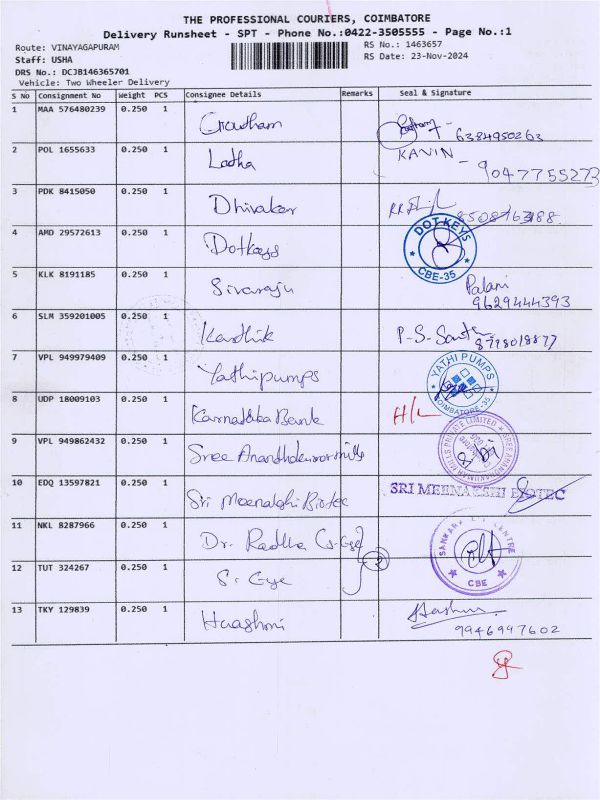 THE PROFESSIONAL COURIERS, COIMBATORE
Delivery Runsheet - SPT - Phone No.:0422-3505555 - Page No.:1
Route: VINAYAGAPURAM
RS No.: 1463657
Staff: USHA
RS Date: 23-Nov-2024
DRS No.: DCJB146365701
Vehicle: Two Wheeler Delivery
S No Consignment No Weight PCS Consignee Details Remarks Seal & Signature
1 MAA 576480239 0.250 1 Gowtham 6384950263
2 POL 1655633 0.250 1 Latha KAVIN - 9047755273
3 PDK 8415050 0.250 1 Dhivakar 8508763488
4 AMD 29572613 0.250 1 Dotkeys DOT KEYS CBE-35
5 KLK 8191185 0.250 1 Sivaraju Palani
9629444393
6 SLM 359201005 0.250 1 Karthik P-S- 8778018877
7 VPL 949979409 0.250 1 Yathipumps YATHI PUMPS COIMBATORE-35
8 UDP 18009103 0.250 1 Karnataka Bank H/L
9 VPL 949862432 0.250 1 Sree Ananthakumar mills SREE ANANDHAKUMAR MILLS PRIVATE LIMITED
10 EDQ 13597821 0.250 1 Sri Meenakshi Biotec SRI MEENAKSHI BIOTEC
11 NKL 8287966 0.250 1 Dr. Radha (S-Eye) SANKARA EYE CENTRE CBE
12 TUT 324267 0.250 1 S. Eye 2
13 TKY 129839 0.250 1 Haashini
9946947602